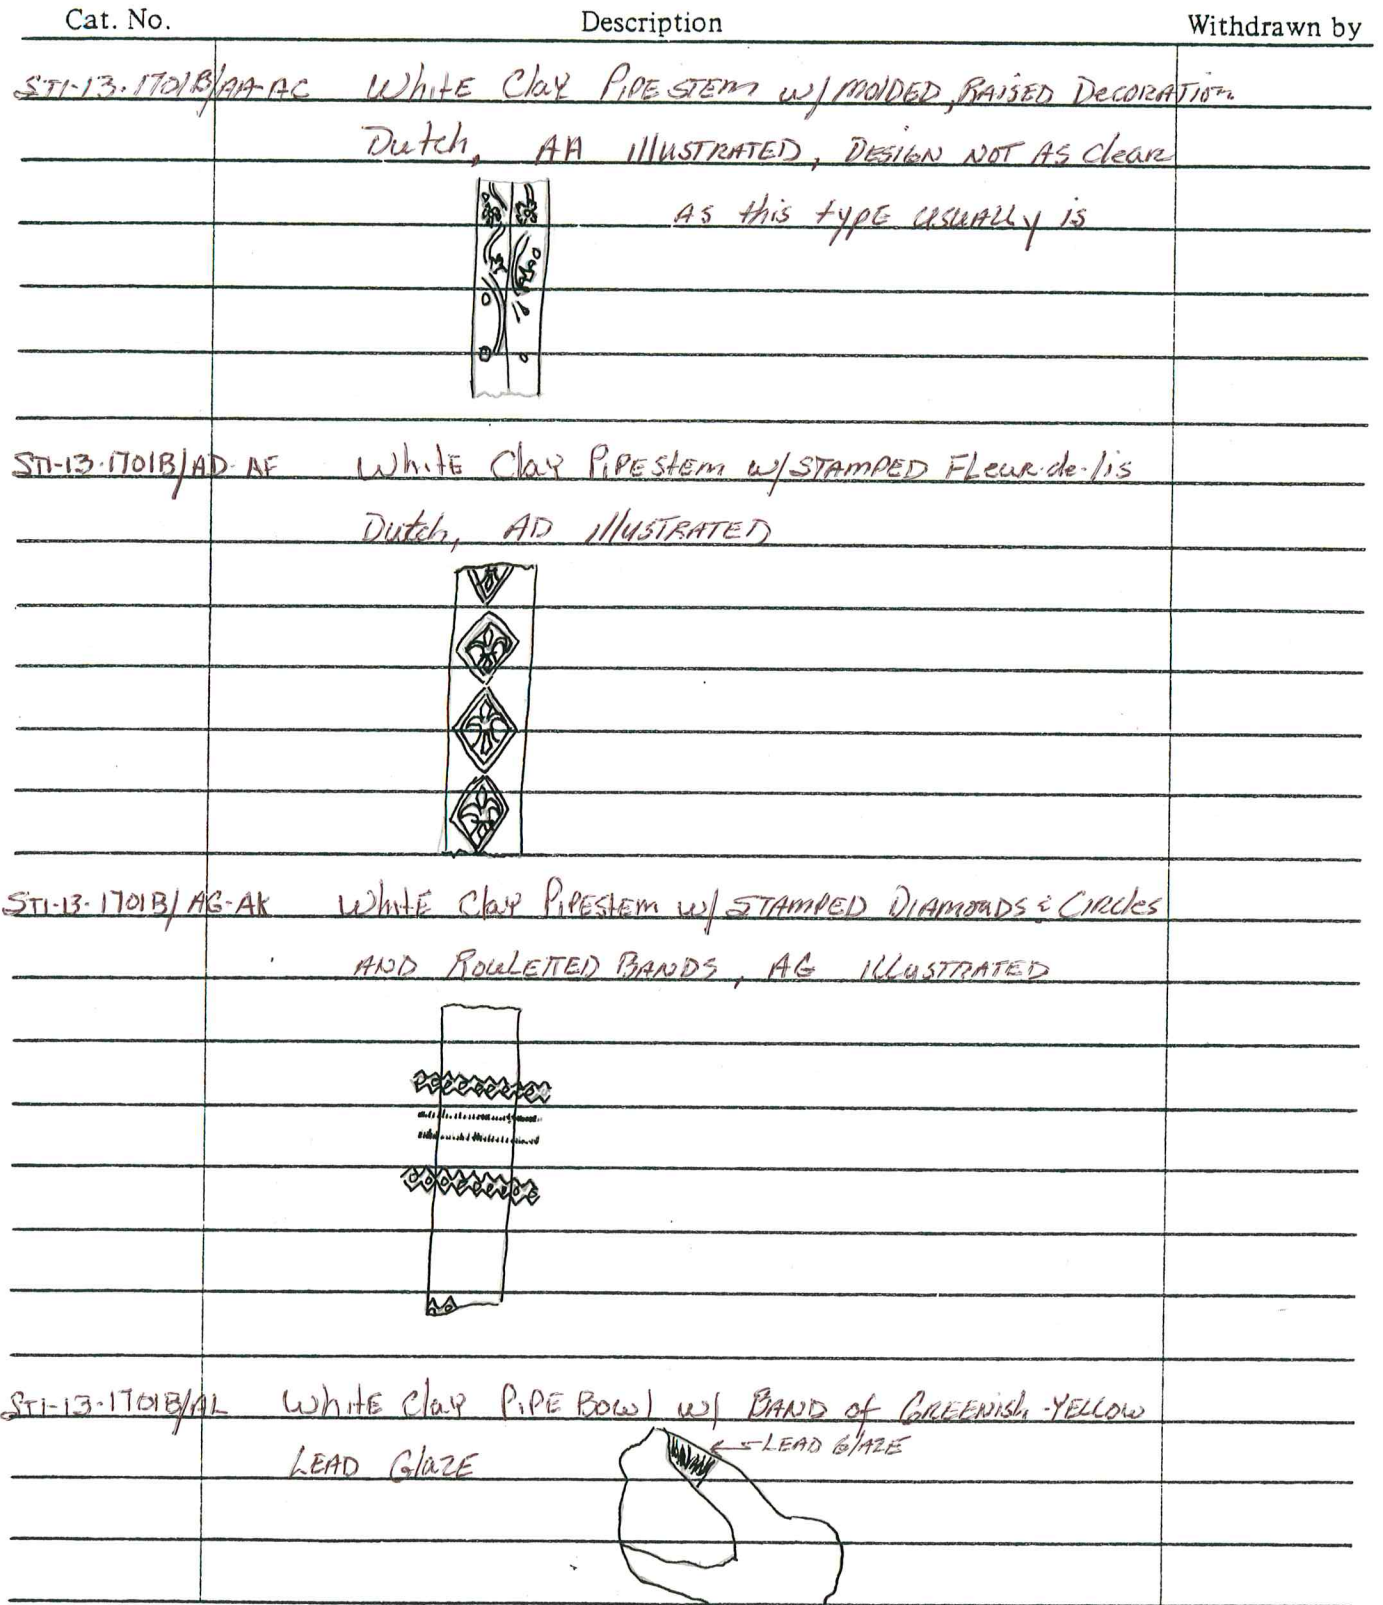 Cat. No. Description Withdrawn by
ST1-13-1701B/AA-AC White Clay Pipe stem w/ molded, Raised Decoration
Dutch, AA illustrated, Design not as clear
as this type usually is
ST1-13-1701B/AD-AF White Clay Pipestem w/ stamped Fleur-de-lis
Dutch, AD illustrated
ST1-13-1701B/AG-AK White Clay Pipestem w/ stamped Diamonds & Circles
and Rouletted Bands, AG illustrated
ST1-13-1701B/AL White Clay Pipe Bowl w/ Band of Greenish-Yellow
← Lead Glaze
Lead Glaze